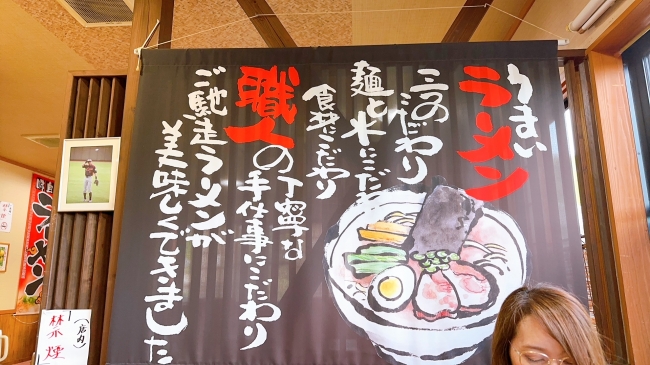 うまい
ラーメン
三つのこだわり
麺と水にこだわり
食材にこだわり
職人の丁寧な
手仕事にこだわり
ご馳走ラーメンが
美味しくできました
(店内)
禁煙